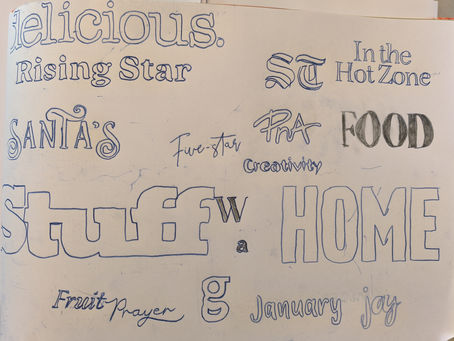 delicious.
Rising Star
ST
In the
Hot Zone
SANTA'S
Five-star
PnA
Creativity
FOOD
Stuff
W
a
HOME
Fruit
Prayer
g
January
joy